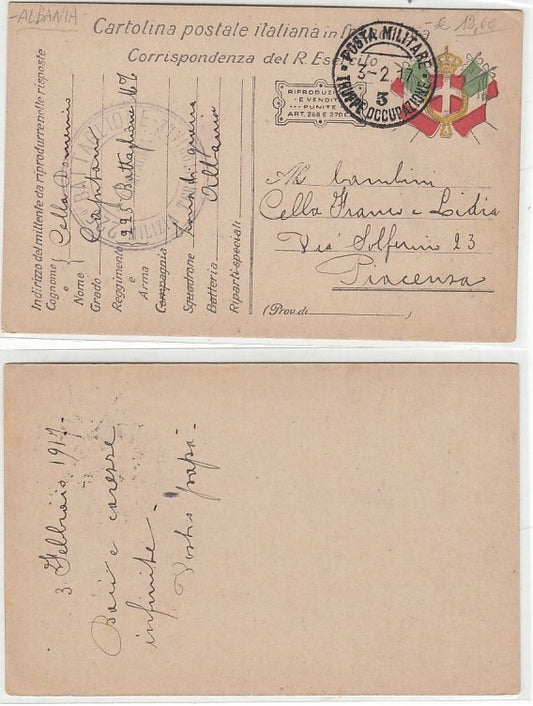 -ALBANIA
-€ 12,00
Cartolina postale italiana in fr
Corrispondenza del R. Esercito
POSTA MILITARE
3-2.17
3
TRUPPE OCCUPAZIONE
RIPRODUZI
E VENDIT
PUNITE
ART. 268 E 270 C.
Indirizzo del mittente da riprodurre nelle risposte
Cognome e Nome { Cella Domenico
Grado Capitano
Reggimento e Arma { 225 Battaglione M.T.
Compagnia
Squadrone Zona di guerra
Batteria Albania
Riparti speciali
BATTAGLIONE
MILIZIA
Ai bambini
Cella Franco e Lidia
Via Solferino 23
Piacenza
(Prov. di )
3 Febbraio 1917.
Baci e caresse
infinite -
Vostro papà -